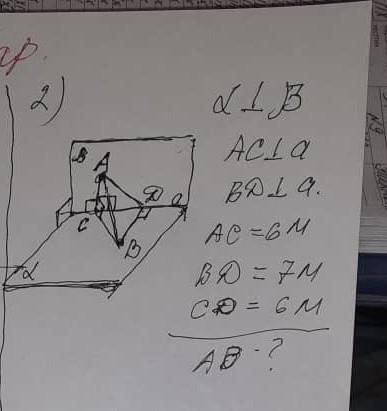 2)
α ⊥ β
AC ⊥ a
BD ⊥ a.
AC = 6 м
BD = 7 м
CD = 6 м
AB - ?
β
A
D
a
C
B
α